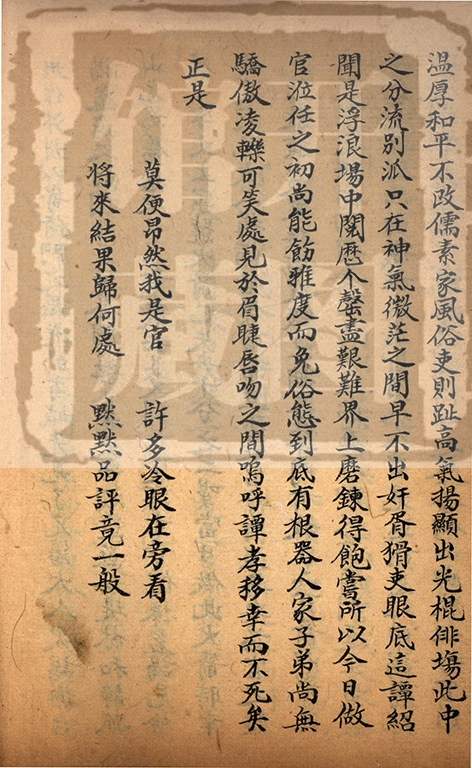 温厚和平不改儒素家風俗吏則趾高氣揚顯出光棍俳塲此中
之分流別派只在神氣微茫之間早不出奸胥猾吏眼底這譚紹
聞是浮浪場中閱歷个罄盡艱難界上磨鍊得飽嘗所以今日做
官涖任之初尚能飭雅度而免俗態到底有根器人家子弟尚無
驕傲凌轢可笑處見於眉睫唇吻之間嗚呼譚孝移幸而不死矣
正是
莫便昂然我是官 許多冷眼在旁看
將來結果歸何處 黙黙品評竟一般